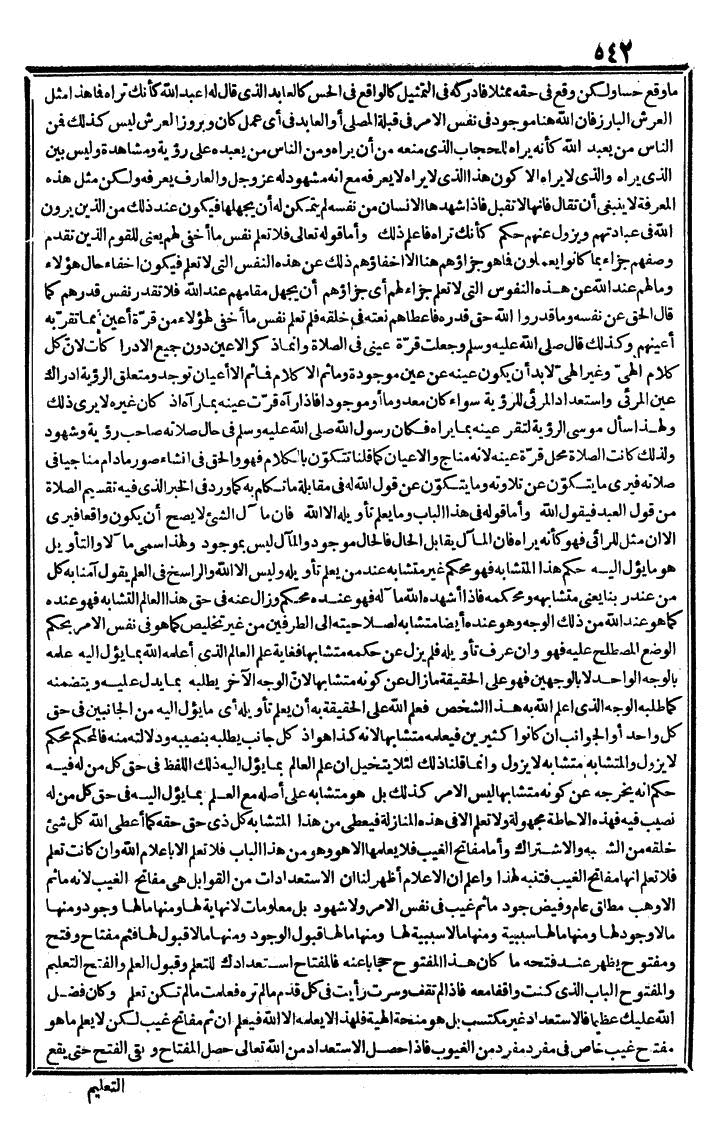 ٥٤٢
ماوقع حساولكن وقع فى حقه ممثلا فادركه فى التمثيل كالواقع فى الحس كالعابد الذى قال له اعبد الله كأنك تراه فاهذا مثل
العرش البارز فان الله هنا موجود فى نفس الامر فى قبلة المصلى أو العابد فى أى عمل كان وبروز العرش ليس كذلك فمن
الناس من يعبد الله كأنه يراه للحجاب الذى منعه من أن يراه ومن الناس من يعبده على رؤية ومشاهدة وليس بين
الذى يراه والذى لا يراه الا كون هذا الذى لا يراه لا يعرفه مع انه مشهود له عز وجل والعارف يعرفه ولكن مثل هذه
المعرفة لا ينبغى أن تقال فانها لا تقبل فاذا شهدها الانسان من نفسه لم يتمكن له أن يجهلها فيكون عند ذلك من الذين يرون
الله فى عبادتهم ويزول عنهم حكم كأنك تراه فاعلم ذلك وأما قوله تعالى فلا تعلم نفس ما أخفى لهم يعنى للقوم الذين تقدم
وصفهم جزاء بما كانوا يعملون فاهو جزاؤهم هنا الا اخفاؤهم ذلك عن هذه النفس التى لا تعلم فيكون اخفاء حال هؤلاء
ومالهم عند الله عن هذه النفوس التى لا تعلم جزاء لهم أى جزاؤهم أن يجهل مقامهم عند الله فلا تقدر نفس قدرهم كما
قال الحق عن نفسه وماقدروا الله حق قدره فاعطاهم نعته فى خلقه فلم تعلم نفس ما أخفى لهؤلاء من قرّة أعين مما تقرّ به
أعينهم وكذلك قال صلى الله عليه وسلم وجعلت قرّة عينى فى الصلاة وانما ذكر الاعين دون جميع الادراكات لانّ كل
كلام الهىّ وغير الهىّ لابد أن يكون عينه عن عين موجودة وماثم الا كلام فاثم الا أعيان توجد ومتعلق الرؤية ادراك
عين المرئى واستعداد المرئى للرؤية سواء كان معدوما أو موجودا فاذا رآه قرّت عينه بمارآه اذ كان غيره لا يرى ذلك
ولهذا سأل موسى الرؤية لتقر عينه بما يراه فكان رسول الله صلى الله عليه وسلم فى حال صلاته صاحب رؤية وشهود
ولذلك كانت الصلاة محل قرّة عينه لانه مناج والاعيان كما قلنا تتكوّن بالكلام فهو والحق فى انشاء صور مادام مناجيا فى
صلاته فيرى ما يتكوّن عن تلاوته وما يتكوّن عن قول الله له فى مقابلة ما تكلم به كما ورد فى الخبر الذى فيه تقسيم الصلاة
من قول العبد فيقول الله وأما قوله فى هذا الباب وما يعلم تأويله الا الله فان مآل الشئ لا يصح أن يكون واقعا فيرى
الا ان مثل للرائى فهو كأنه يراه فان المآل يقابل الحال فالحال موجود والمآل ليس بموجود ولهذا سمى مآلا والتأويل
هو ما يؤل اليه حكم هذا المتشابه فهو محكم غير متشابه عند من يعلم تأويله وليس الا الله والراسخ فى العلم يقول آمنا به كل
من عند ربنا يعنى متشابهه ومحكمه فاذا أشهده الله مآله فهو عنده محكم وزال عنه فى حق هذا العالم التشابه فهو عنده
كما هو عند الله من ذلك الوجه وهو عنده أيضا متشابه لصلاحيته الى الطرفين من غير تخليص كما هو فى نفس الامر بحكم
الوضع المصطلح عليه فهو وان عرف تأويله فلم يزل عن حكمه متشابها فغاية علم العالم الذى أعلمه الله بما يؤل اليه علمه
بالوجه الواحد لا بالوجهين فهو على الحقيقة مازال عن كونه متشابها لانّ الوجه الآخر يطلبه بما يدل عليه ويتضمنه
كما طلبه الوجه الذى اعلم الله به هذا الشخص فعلم الله على الحقيقة به أن يعلم تأويله أى ما يؤل اليه من الجانبين فى حق
كل واحد أو الجوانب ان كانوا كثيرين فيعلمه متشابها لانه كذا هو اذ كل جانب يطلبه بنصيبه ودلالته منه فالمحكم محكم
لا يزول والمتشابه متشابه لا يزول وانما قلنا ذلك لئلا يتخيل ان علم العالم بما يؤل اليه ذلك اللفظ فى حق كل من له فيه
حكم انه يخرجه عن كونه متشابها ليس الامر كذلك بل هو متشابه على أصله مع العلم بما يؤل اليه فى حق كل من له
نصيب فيه فهذه الاحاطة مجهولة ولا تعلم الا فى هذه المنازلة فيعطى من هذا المتشابه كل ذى حق حقه كما أعطى الله كل شئ
خلقه من الشبه والاشتراك وأما مفاتح الغيب فلا يعلمها الا هو وهو من هذا الباب فلا تعلم الا باعلام الله وان كانت تعلم
فلا تعلم انها مفاتح الغيب فتنبه لهذا واعلم ان الاعلام أظهر لنا ان الاستعدادات من القوابل هى مفاتح الغيب لانه ماثم
الا وهب مطلق عام وفيض جود ماثم غيب فى نفس الامر ولا شهود بل معلومات لا نهاية لها ومنها مالها وجود ومنها
مالا وجود لها ومنها مالها سببية ومنها مالا سببية لها ومنها مالها قبول الوجود ومنها مالا قبول لها فثم مفتاح وفتح
ومفتوح يظهر عند فتحه ما كان هذا المفتوح حجابا عنه فالمفتاح استعدادك للتعلم وقبول العلم والفتح التعليم
والمفتوح الباب الذى كنت واقفا معه فاذا لم تقف وسرت رأيت فى كل قدم مالم تره فعلمت مالم تكن تعلم وكان فضل
الله عليك عظيما فالاستعداد غير مكتسب بل هو منحة الهية فلهذا لا يعلمه الا الله فيعلم ان ثم مفاتح غيب لكن لا يعلم ماهو
مفتح غيب خاص فى مفرد مفرد من الغيوب فاذا حصل الاستعداد من الله تعالى حصل المفتاح وبقى الفتح حتى يقع
التعليم